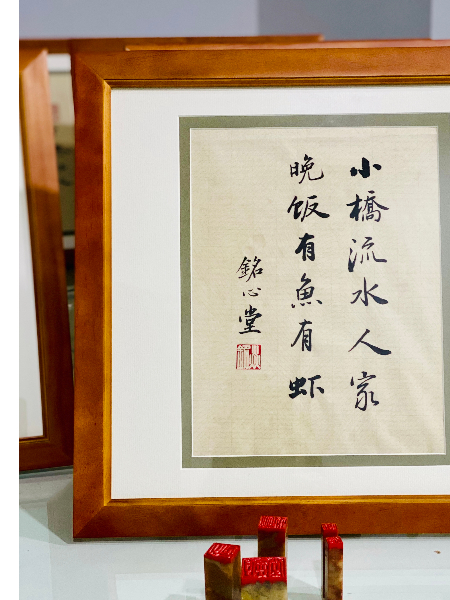 小橋流水人家
晚饭有魚有虾
銘心堂